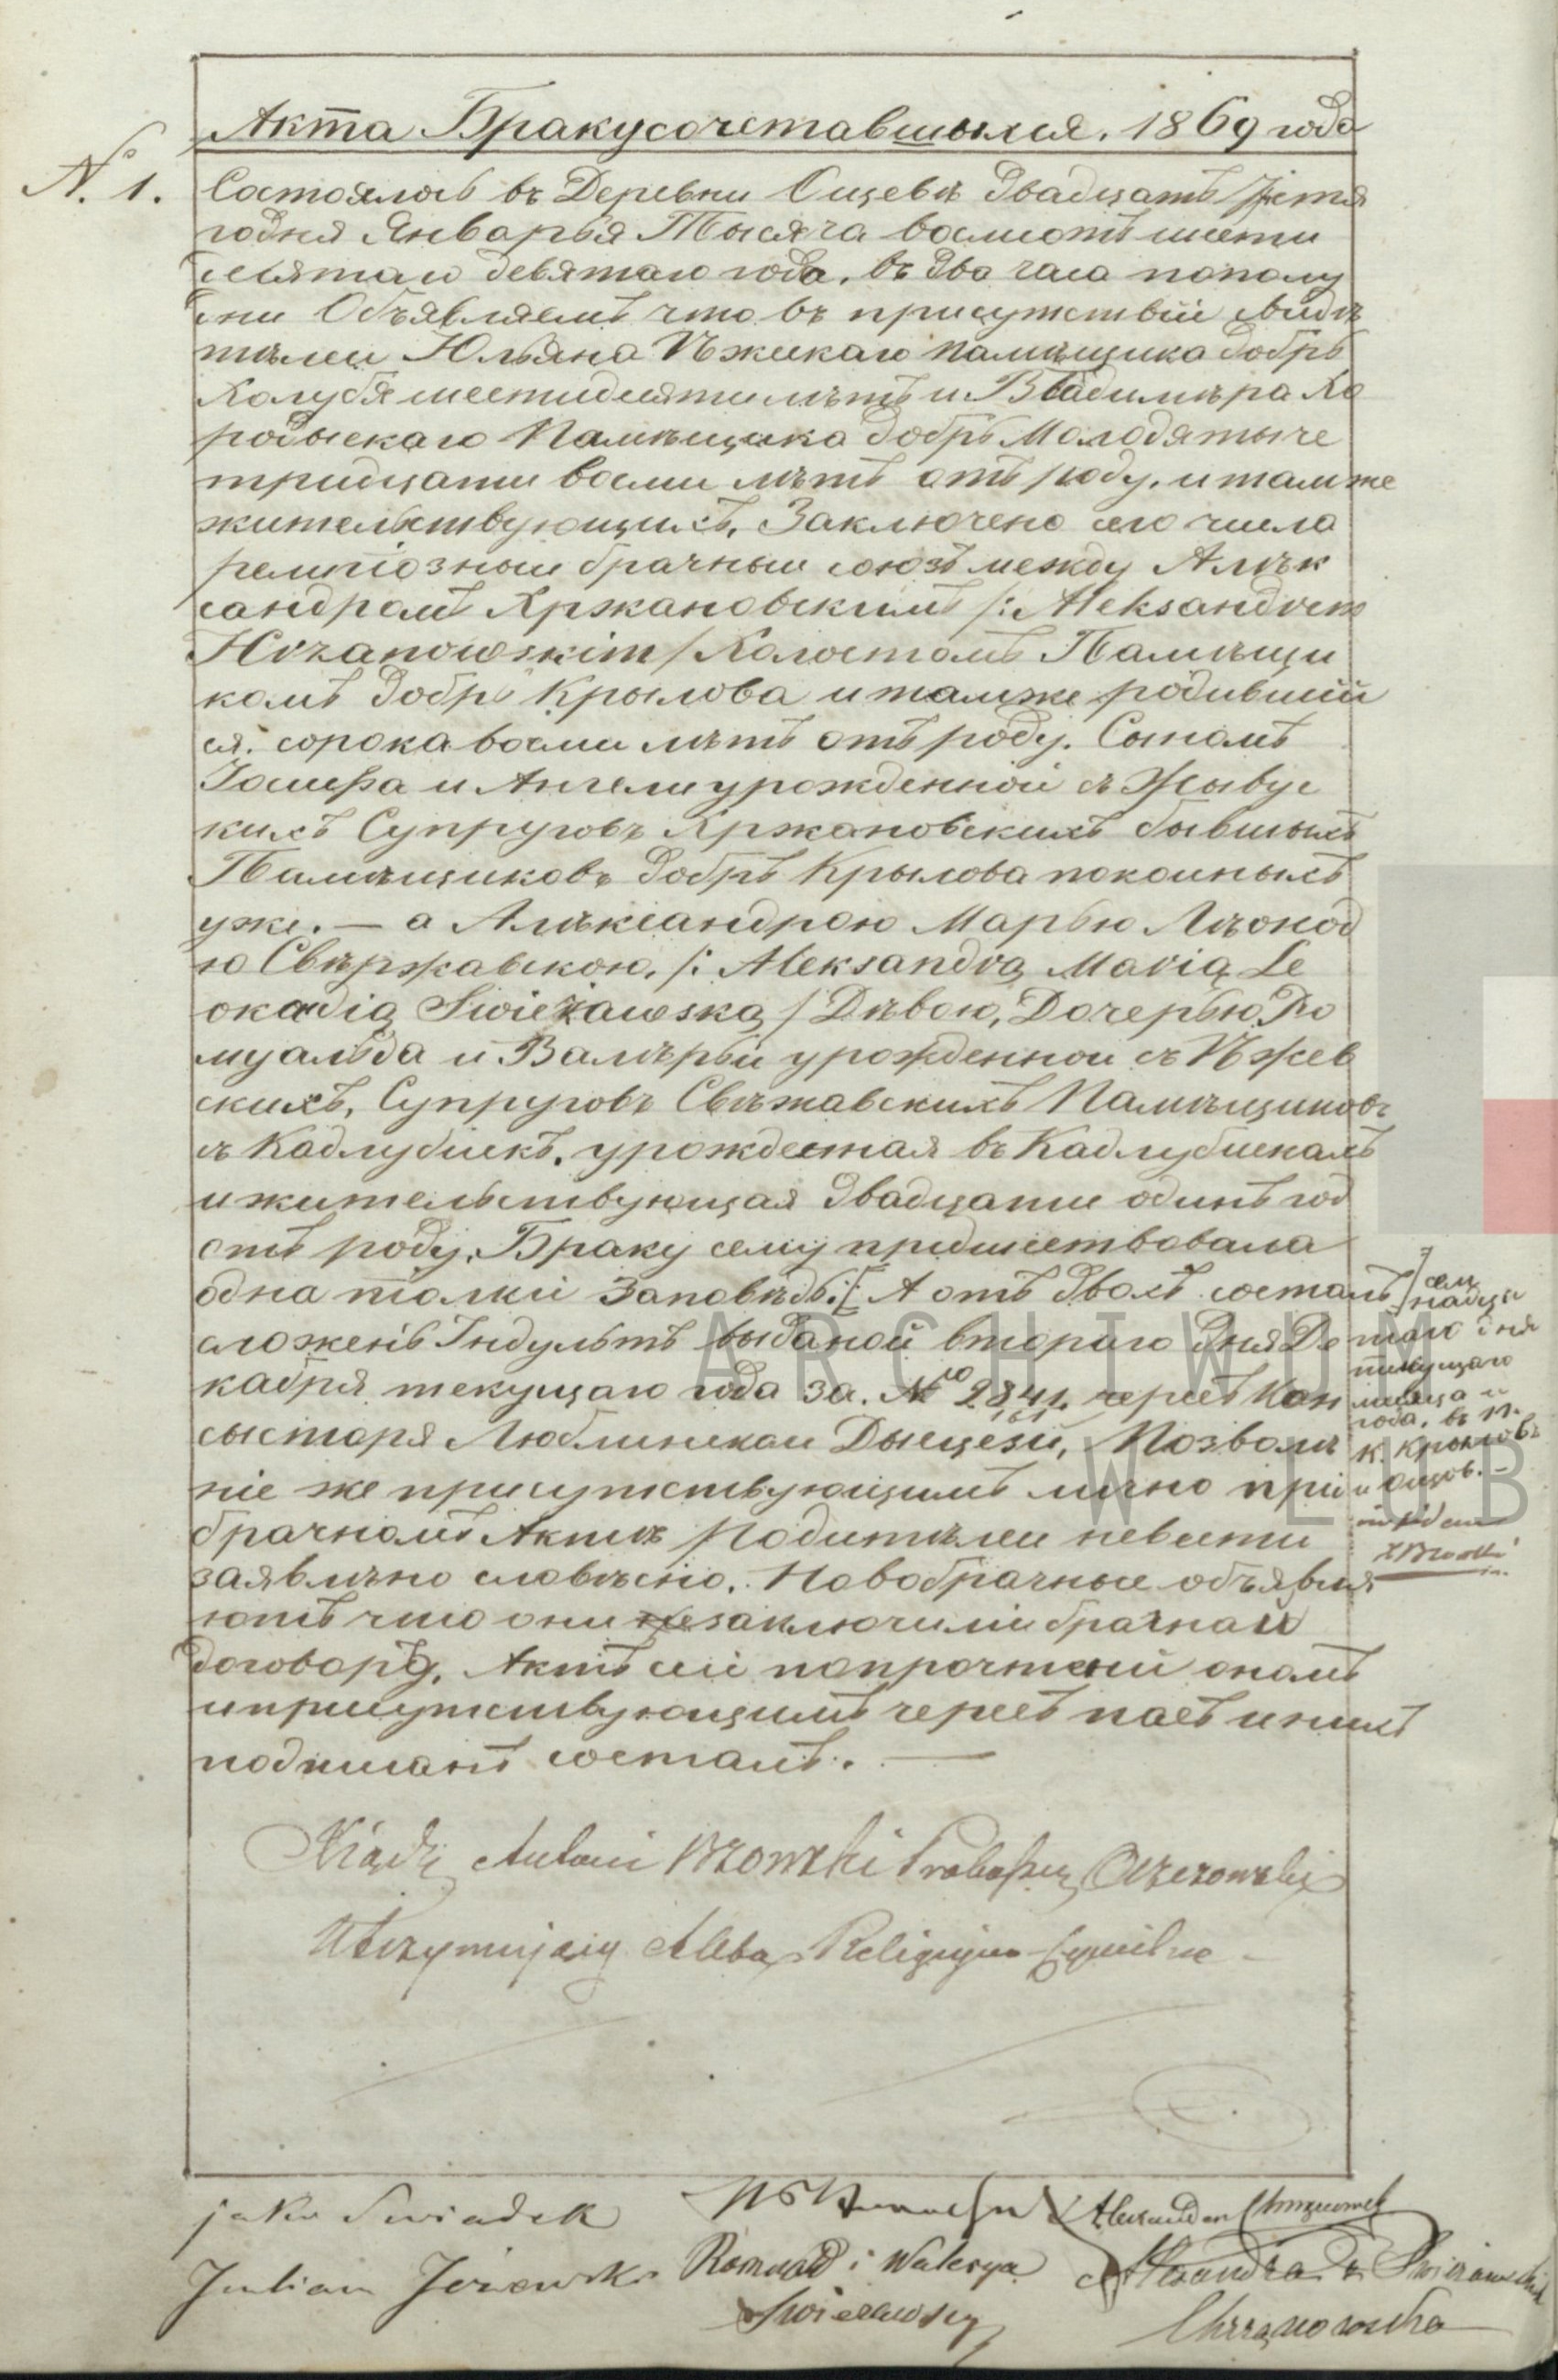 Акта Бракусочетавшыхся. 1869 года
N. 1.
Состоялось въ Деревни Сщевѣ Двадцать
годня Январья Тысяча восмсотъ шести
десятаго девятаго года, въ два часа пополу
дни Объявляемъ что въ присутствіи свидѣ
тѣлеи Юльяна Пом&#1123;щика добръ
шестидесяти лѣтъ и Владимѣра Хо
родыскаго Памѣщика добръ Молодятыче
тридцати восми лѣтъ отъ роду, и тамже
жительствующихъ, Заключено сего числа
религіозныи брачныи союзъ между Алѣк
сандромъ Хржановскимъ /: Aleksandrem
Hrzanowskim / Холостомъ Памѣщи
комъ добръ Крылова и тамже родившій
ся. сорока восми лѣтъ отъ роду. Сыномъ
Іосифа и Ангели урожденной съ
кихъ Супруговъ Хржановскихъ бывшыхъ
Памѣщиковъ добръ Крылова покоиныхъ
уже. — а Алѣксандрою Марью Лѣокод
ю Свѣржавскою, /: Aleksandrą Marią Le
okadią Swieżawską / Дѣвою, Дочерью Ро
муальда и Валѣрьи урожденнои съ Ѣжев
скихъ, Супруговъ Свѣжавскихъ Памѣщиковъ
съ Кадлубискъ, урожденная въ Кадлубискахъ
и жительствующая двадцати одинъ год
отъ роду. Браку сему предшествовала
одна толки Заповѣдь: [ А отъ двохъ состалъ
сложенъ Индультъ выданой втораго Дня Де
кабря текущаго года за. № 2841. черезъ Кон
сысторя Люблинскаи Дыецезіи, Позволѣ
ніе же присутствующимъ лично при
брачномъ Актѣ Родитѣлеи невѣсти
заявлѣно словѣсно. Новобрачные объявля
ютъ что они не заключили брачнаго
договора, Актъ сеи попрочтеніи ономъ
и присутствующимъ черезъ насъ и нихъ
подписанъ состалъ. —
] сем
надца
таго дня
текущаго
месяца и
года, въ п.
к. Крыловъ
и
Xiądz Antoni Proboszcz
Utrzymujący Akta Religijno Cywilne
jako Swiadek
Julian Jeżewski
Romuald i Walerya
Swieżawscy
Alexander Chrzanowski
Alexandra z Swieżawskich
Chrzanowska